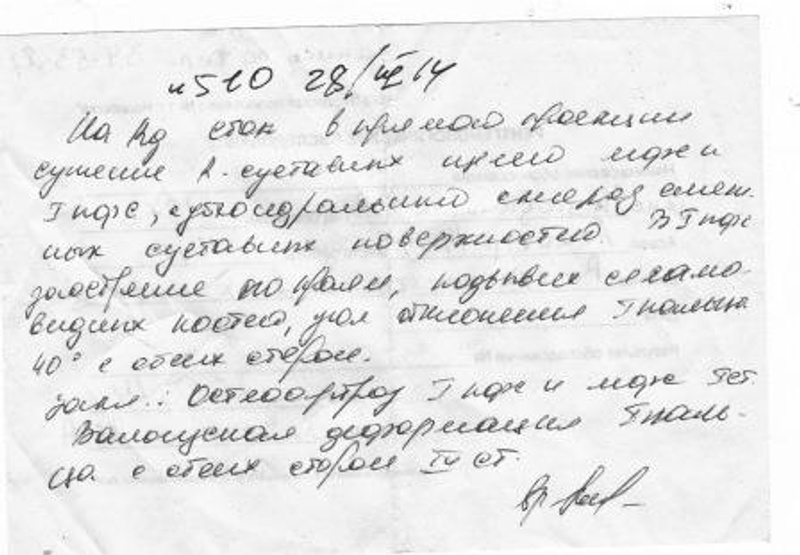 №510 28/VII 14
На Rg стоп в прямой проекции
сужение R-суставных щелей мфж и
I пфс, субхондральный склероз смеж-
ных суставных поверхностей. В I пфс
заострение по краям, подвывих сесамо-
видных костей, угол отклонения I пальца
40° с обеих сторон.
Закл.: Остеоартроз I пфс и мфж I ст.
Вальгусная деформация I паль-
ца с обеих сторон IV ст.
Вр.